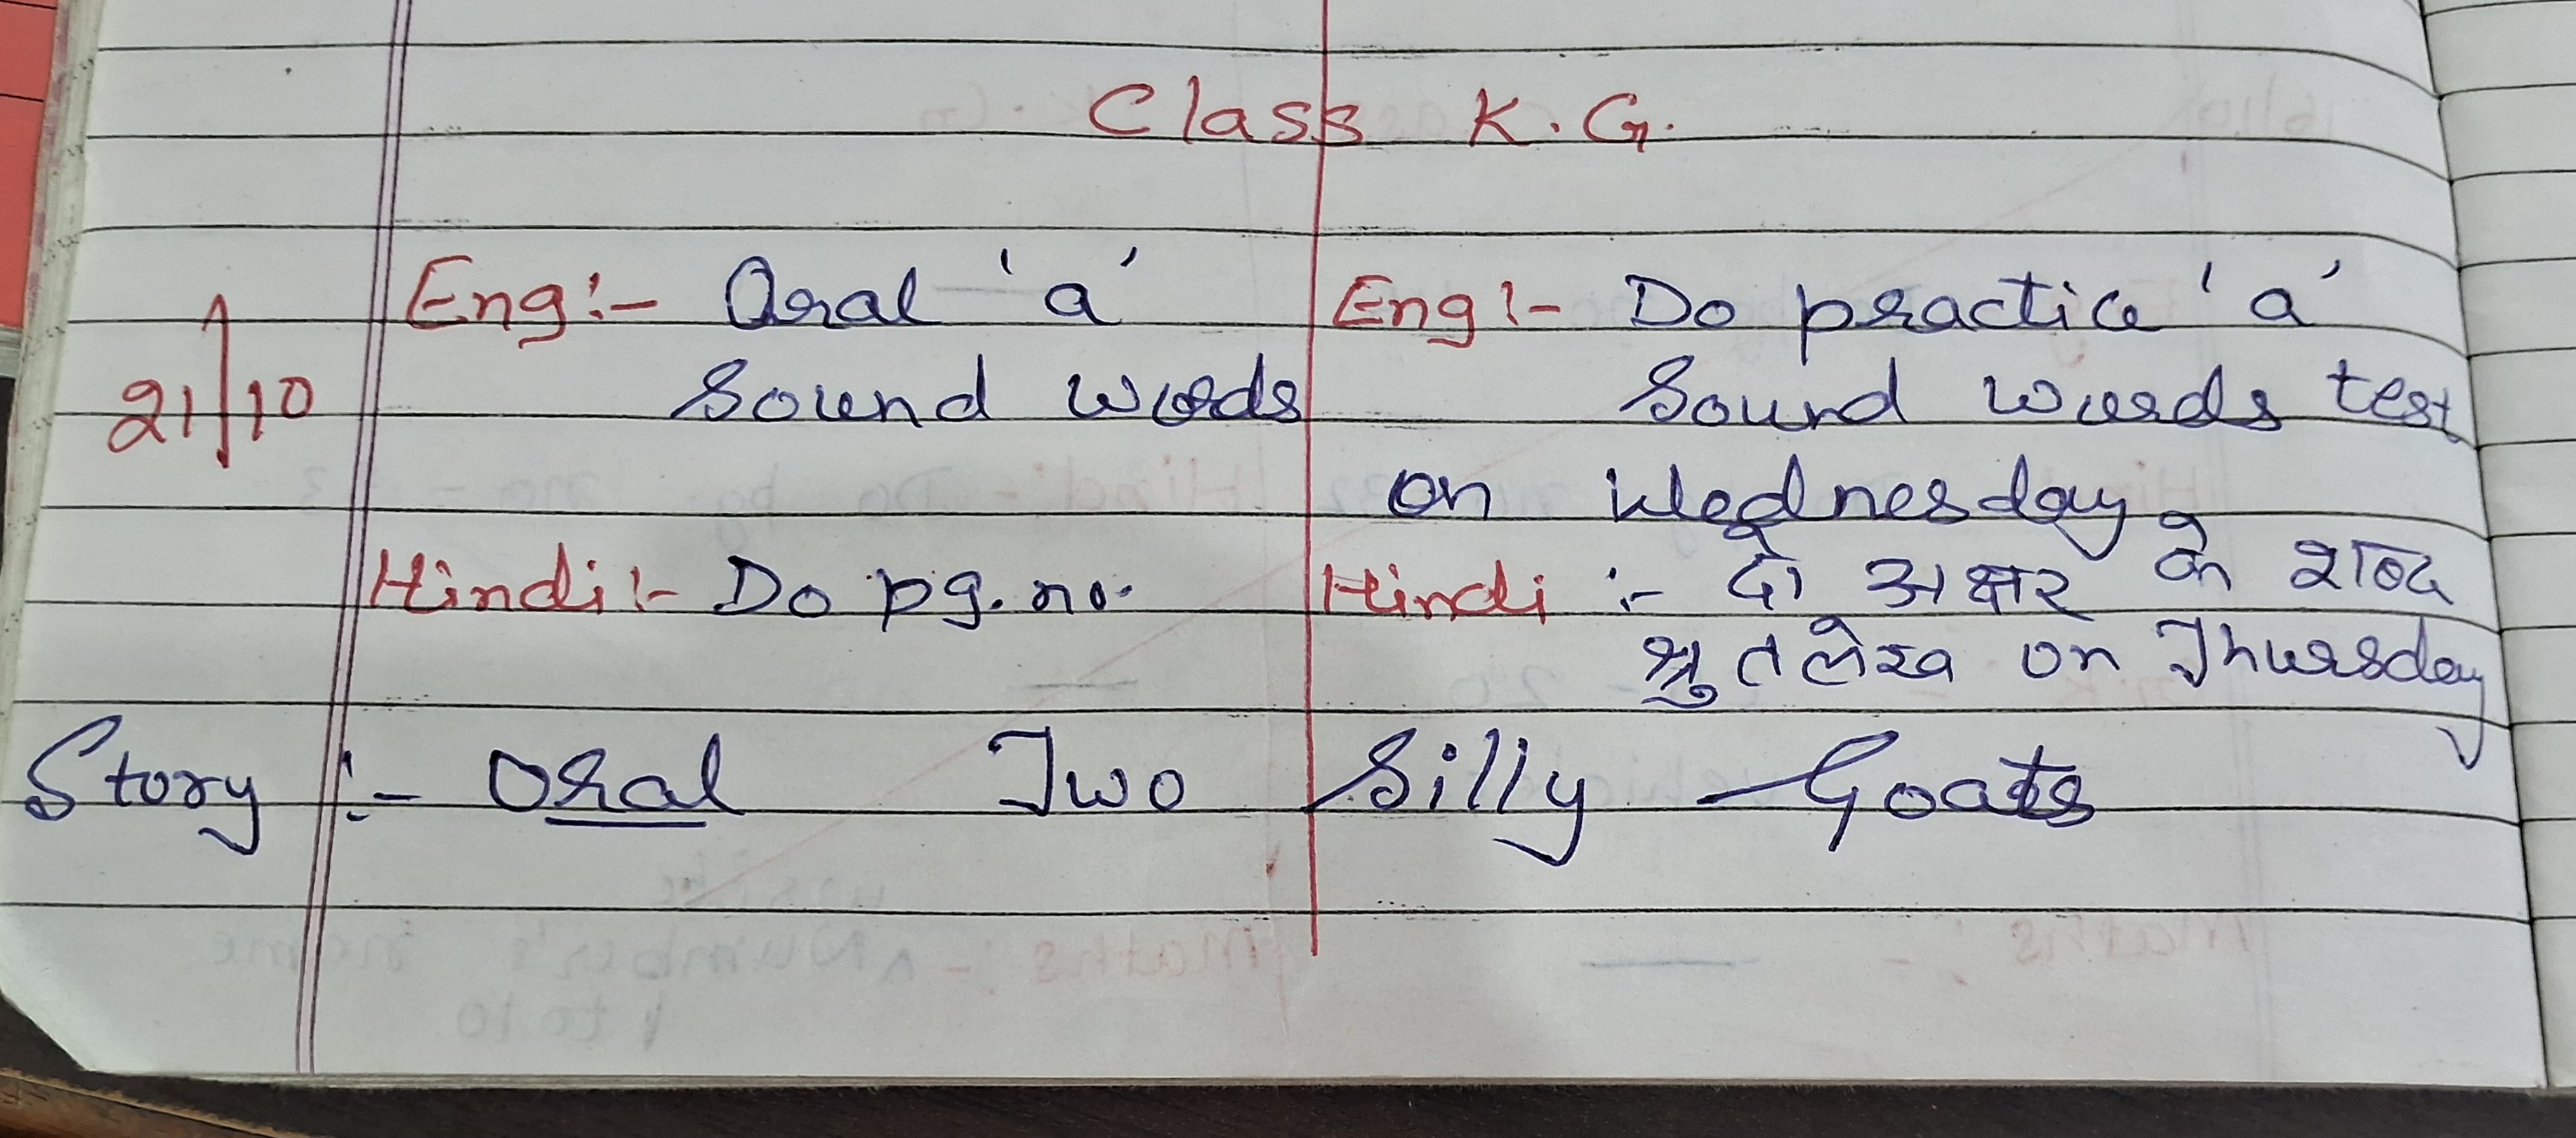 Class K.G.
21/10
Eng:- Oral 'a'
Sound words
Hindi:- Do pg. no.
Eng:- Do practice 'a'
Sound words test
on Wednesday
Hindi :- दो अक्षर के शब्द
श्रुतलेख on Thursday
Story :- Oral Two Silly Goats